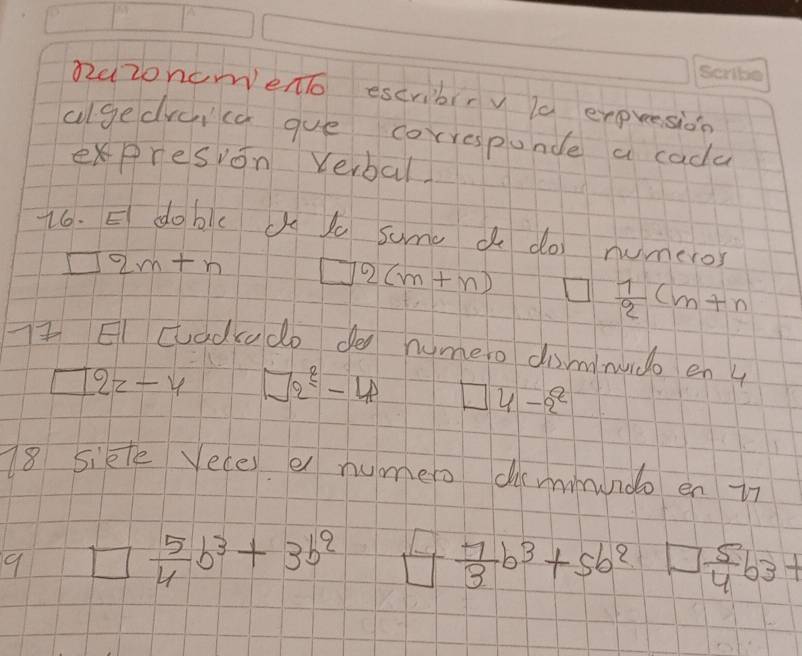 Scribe
Razonamiento escribir v la expresión
algedraica que corresponde a cada
expresión verbal.
16. El doble de la suma de dos numeros
□ 2m + n □ 2(m + n) □ 1/2 (m + n
17 El Cuadrado del numero disminuido en 4
□ 2z - 4 □ z² - 4 □ 4 - z²
18 siete veces el numero disminuido en 11
9 □ 5/4 b³ + 3b² □ 7/3 b³ + 5b² □ 5/4 b3 +